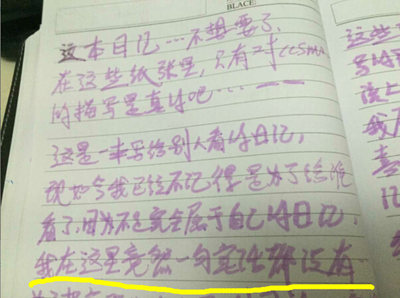 BLACE
这本日记…不想要了,
在这些纸张里,只有对ccsmu
的描写是真的吧……——
这是一本写给别人看的日记,
现如今我已经不记得是为了给谁
看了,因为不是完全属于自己的日记,
我在这里竟然一句实话都没有
这些
写的
读上
我
喜
记